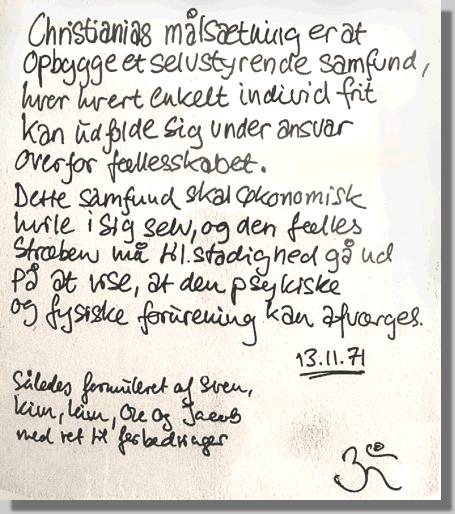 Christianias målsætning er at
opbygge et selvstyrende samfund,
hvor hvert enkelt individ frit
kan udfolde sig under ansvar
overfor fællesskabet.
Dette samfund skal økonomisk
hvile i sig selv, og den fælles
stræben må til stadighed gå ud
på at vise, at den psykiske
og fysiske forurening kan afværges.
13.11.71
Således formuleret af Sven,
Kim, Kim, Ole og Jacob
med ret til forbedringer
ॐ